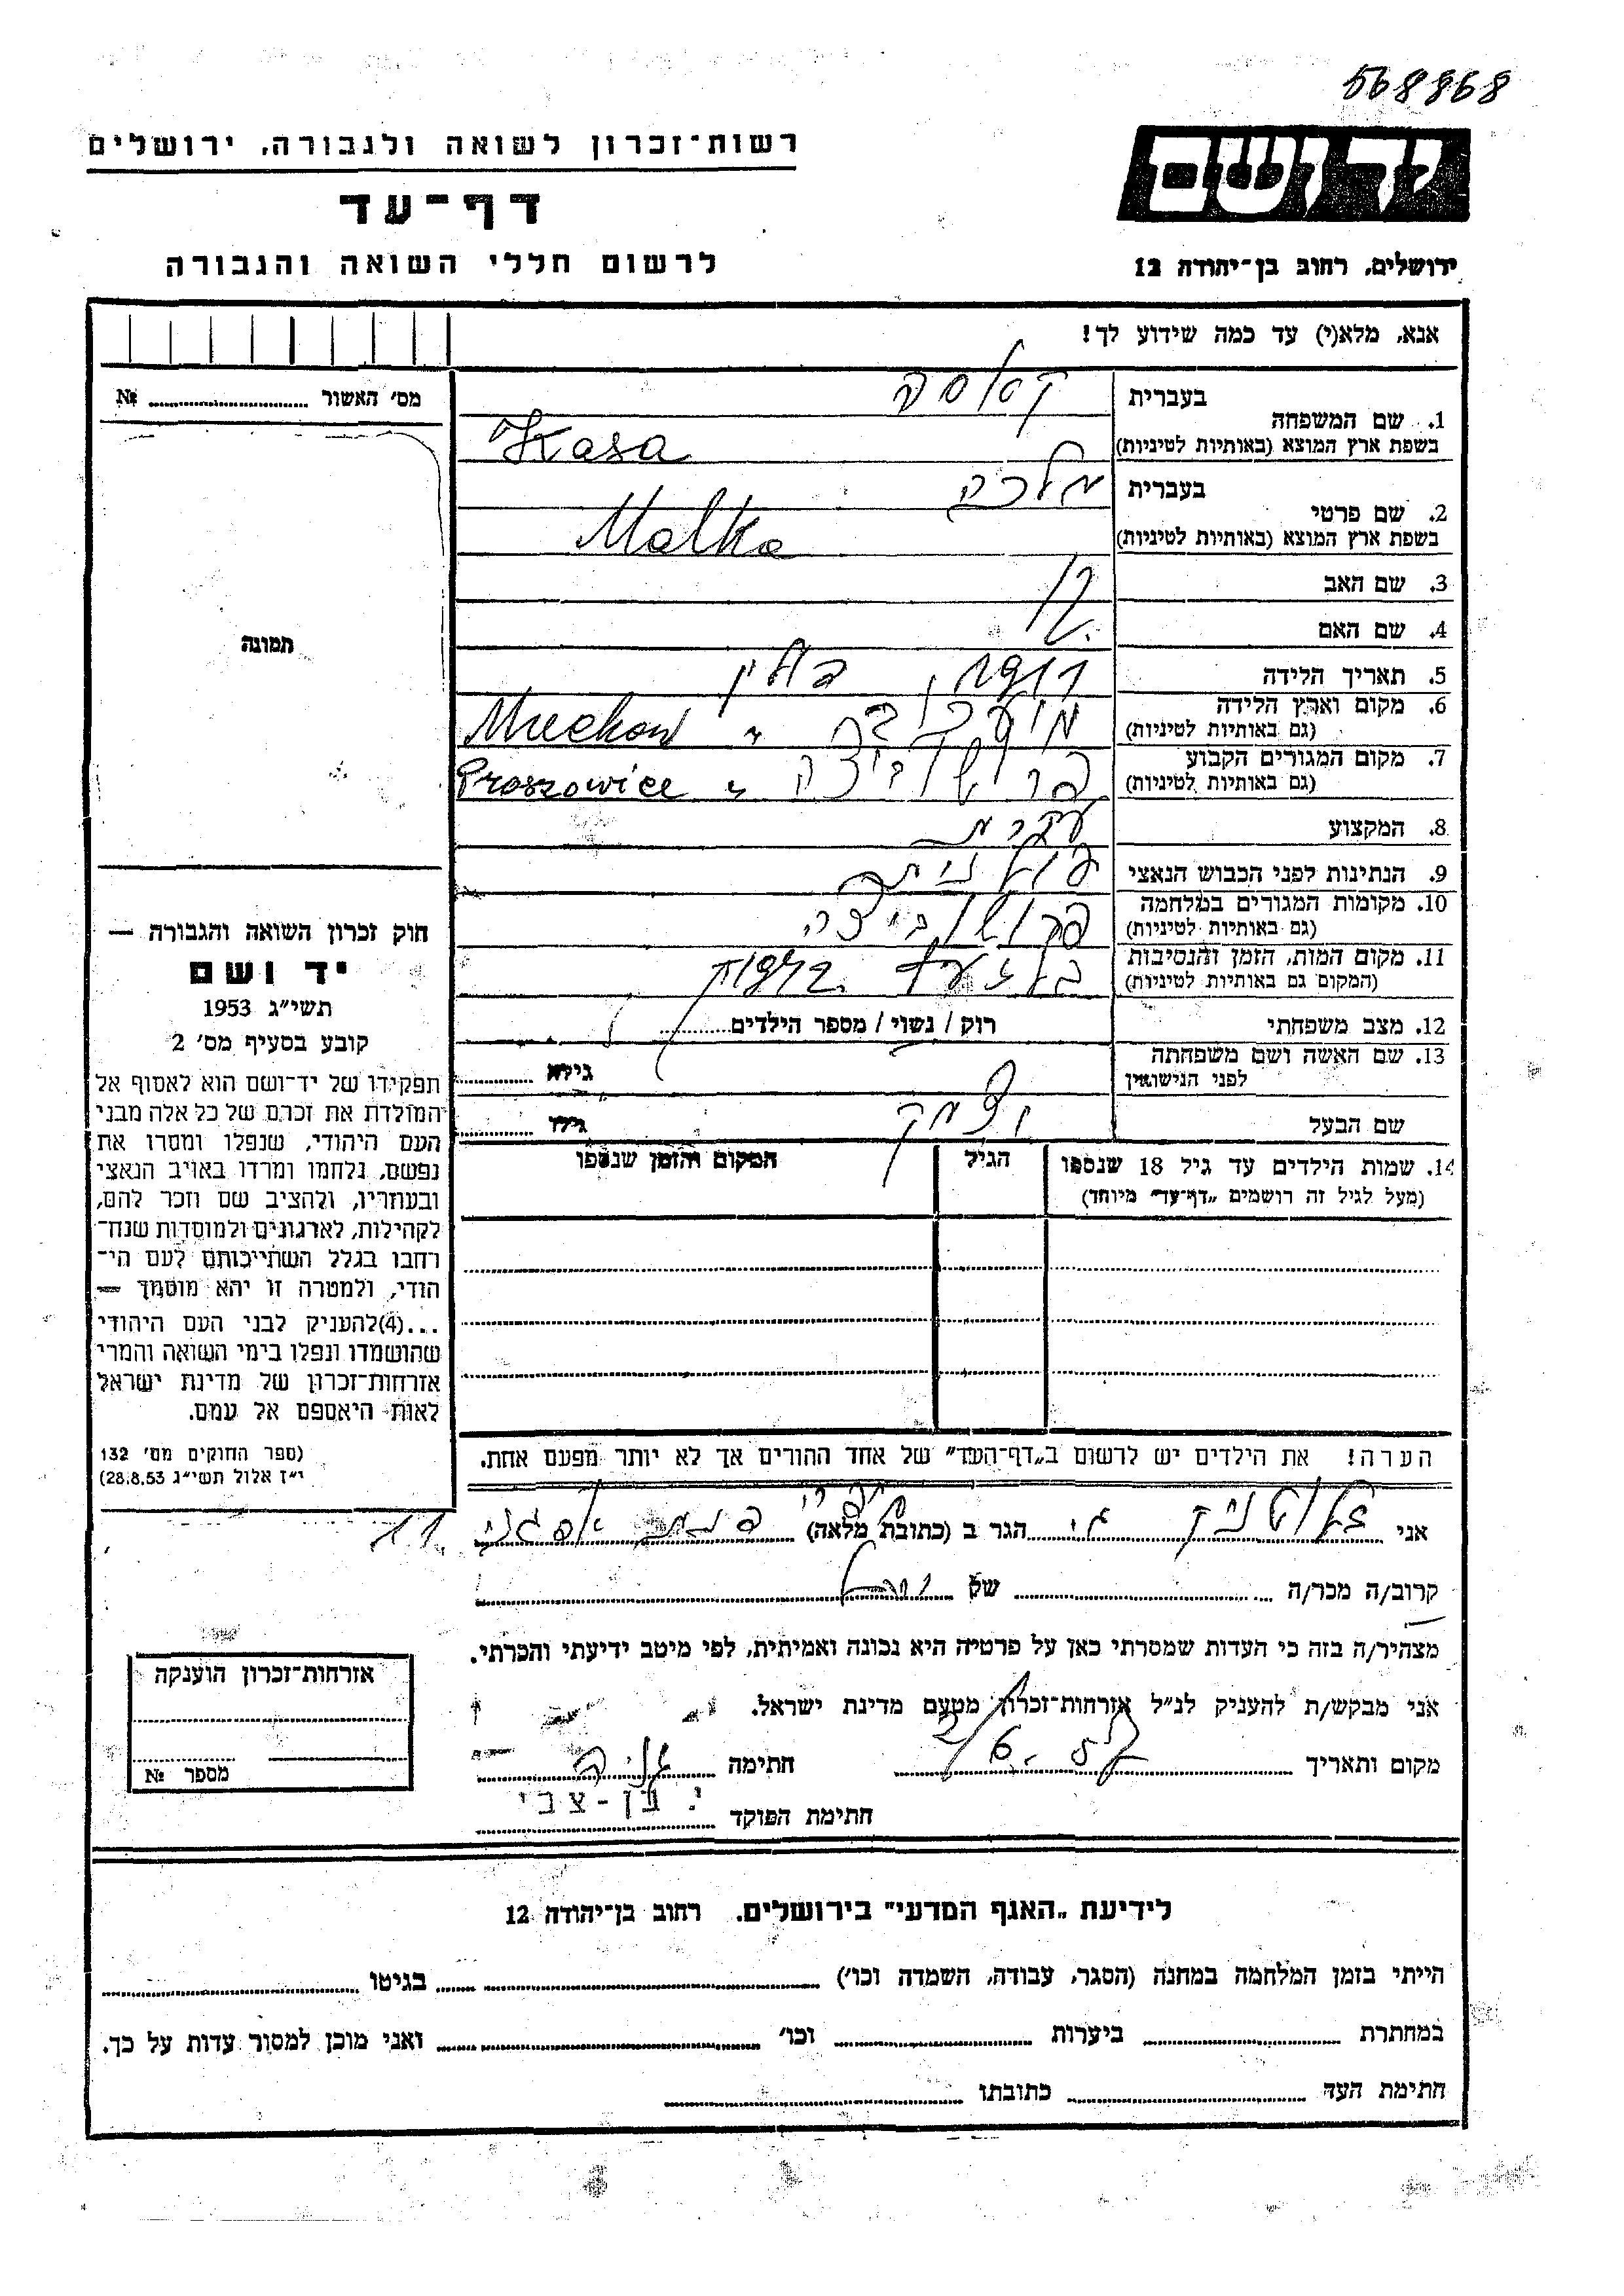 568868
יד ושם
רשות־זכרון לשואה ולגבורה, ירושלים
דף־עד
לרשום חללי השואה והגבורה
ירושלים, רחוב בן־יהודה 12
אנא, מלא(י) עד כמה שידוע לך!
מס' האשור № 
תמונה
1. שם המשפחה
בעברית קאסה
בשפת ארץ המוצא (באותיות לטיניות) Kasa
2. שם פרטי
בעברית מלכה
בשפת ארץ המוצא (באותיות לטיניות) Malka
3. שם האב
4. שם האם
5. תאריך הלידה
6. מקום וארץ הלידה
(גם באותיות לטיניות) Miechow
7. מקום המגורים הקבוע
(גם באותיות לטיניות) פרושוביצה Proszowice
8. המקצוע עקרת
9. הנתינות לפני הכבוש הנאצי פולנית
10. מקומות המגורים במלחמה
(גם באותיות לטיניות) פרושוביצה
11. מקום המות, הזמן והנסיבות
(המקום גם באותיות לטיניות)
12. מצב משפחתי רוק / נשוי / מספר הילדים
13. שם האשה ושם משפחתה
לפני הנישואין גילה
שם הבעל יצחק גילו
14. שמות הילדים עד גיל 18 שנספו
(מעל לגיל זה רושמים „דף־עד" מיוחד)
הגיל
המקום והזמן שנספו
חוק זכרון השואה והגבורה —
יד ושם
תשי״ג 1953
קובע בסעיף מס' 2
תפקידו של יד־ושם הוא לאסוף אל
המולדת את זכרם של כל אלה מבני
העם היהודי, שנפלו ומסרו את
נפשם, נלחמו ומרדו באויב הנאצי
ובעוזריו, ולהציב שם וזכר להם,
לקהילות, לארגונים ולמוסדות שנח־
רחבו בגלל השתייכותם לעם הי־
הודי, ולמטרה זו יהא מוסמך —
...(4)להעניק לבני העם היהודי
שהושמדו ונפלו בימי השואה והמרי
אזרחות־זכרון של מדינת ישראל
לאות היאספם אל עמם.
(ספר החוקים מס' 132
י״ז אלול תשי״ג 28.8.53)
הערה! את הילדים יש לרשום ב„דף־העד" של אחד ההורים אך לא יותר מפעם אחת.
אני הגר ב (כתובת מלאה) 11
קרוב/ה מכר/ה של
מצהיר/ה בזה כי העדות שמסרתי כאן על פרטיה היא נכונה ואמיתית, לפי מיטב ידיעתי והכרתי.
אני מבקש/ת להעניק לנ״ל אזרחות־זכרון מטעם מדינת ישראל.
מקום ותאריך חתימה
י. בן-צבי
חתימת הפוקד
אזרחות־זכרון הוענקה
מספר №
לידיעת „האגף המדעי" בירושלים, רחוב בן־יהודה 12
הייתי בזמן המלחמה במחנה (הסגר, עבודה, השמדה וכו') בגיטו
במחתרת ביערות וכו' ואני מוכן למסור עדות על כך.
חתימת העד כתובתו